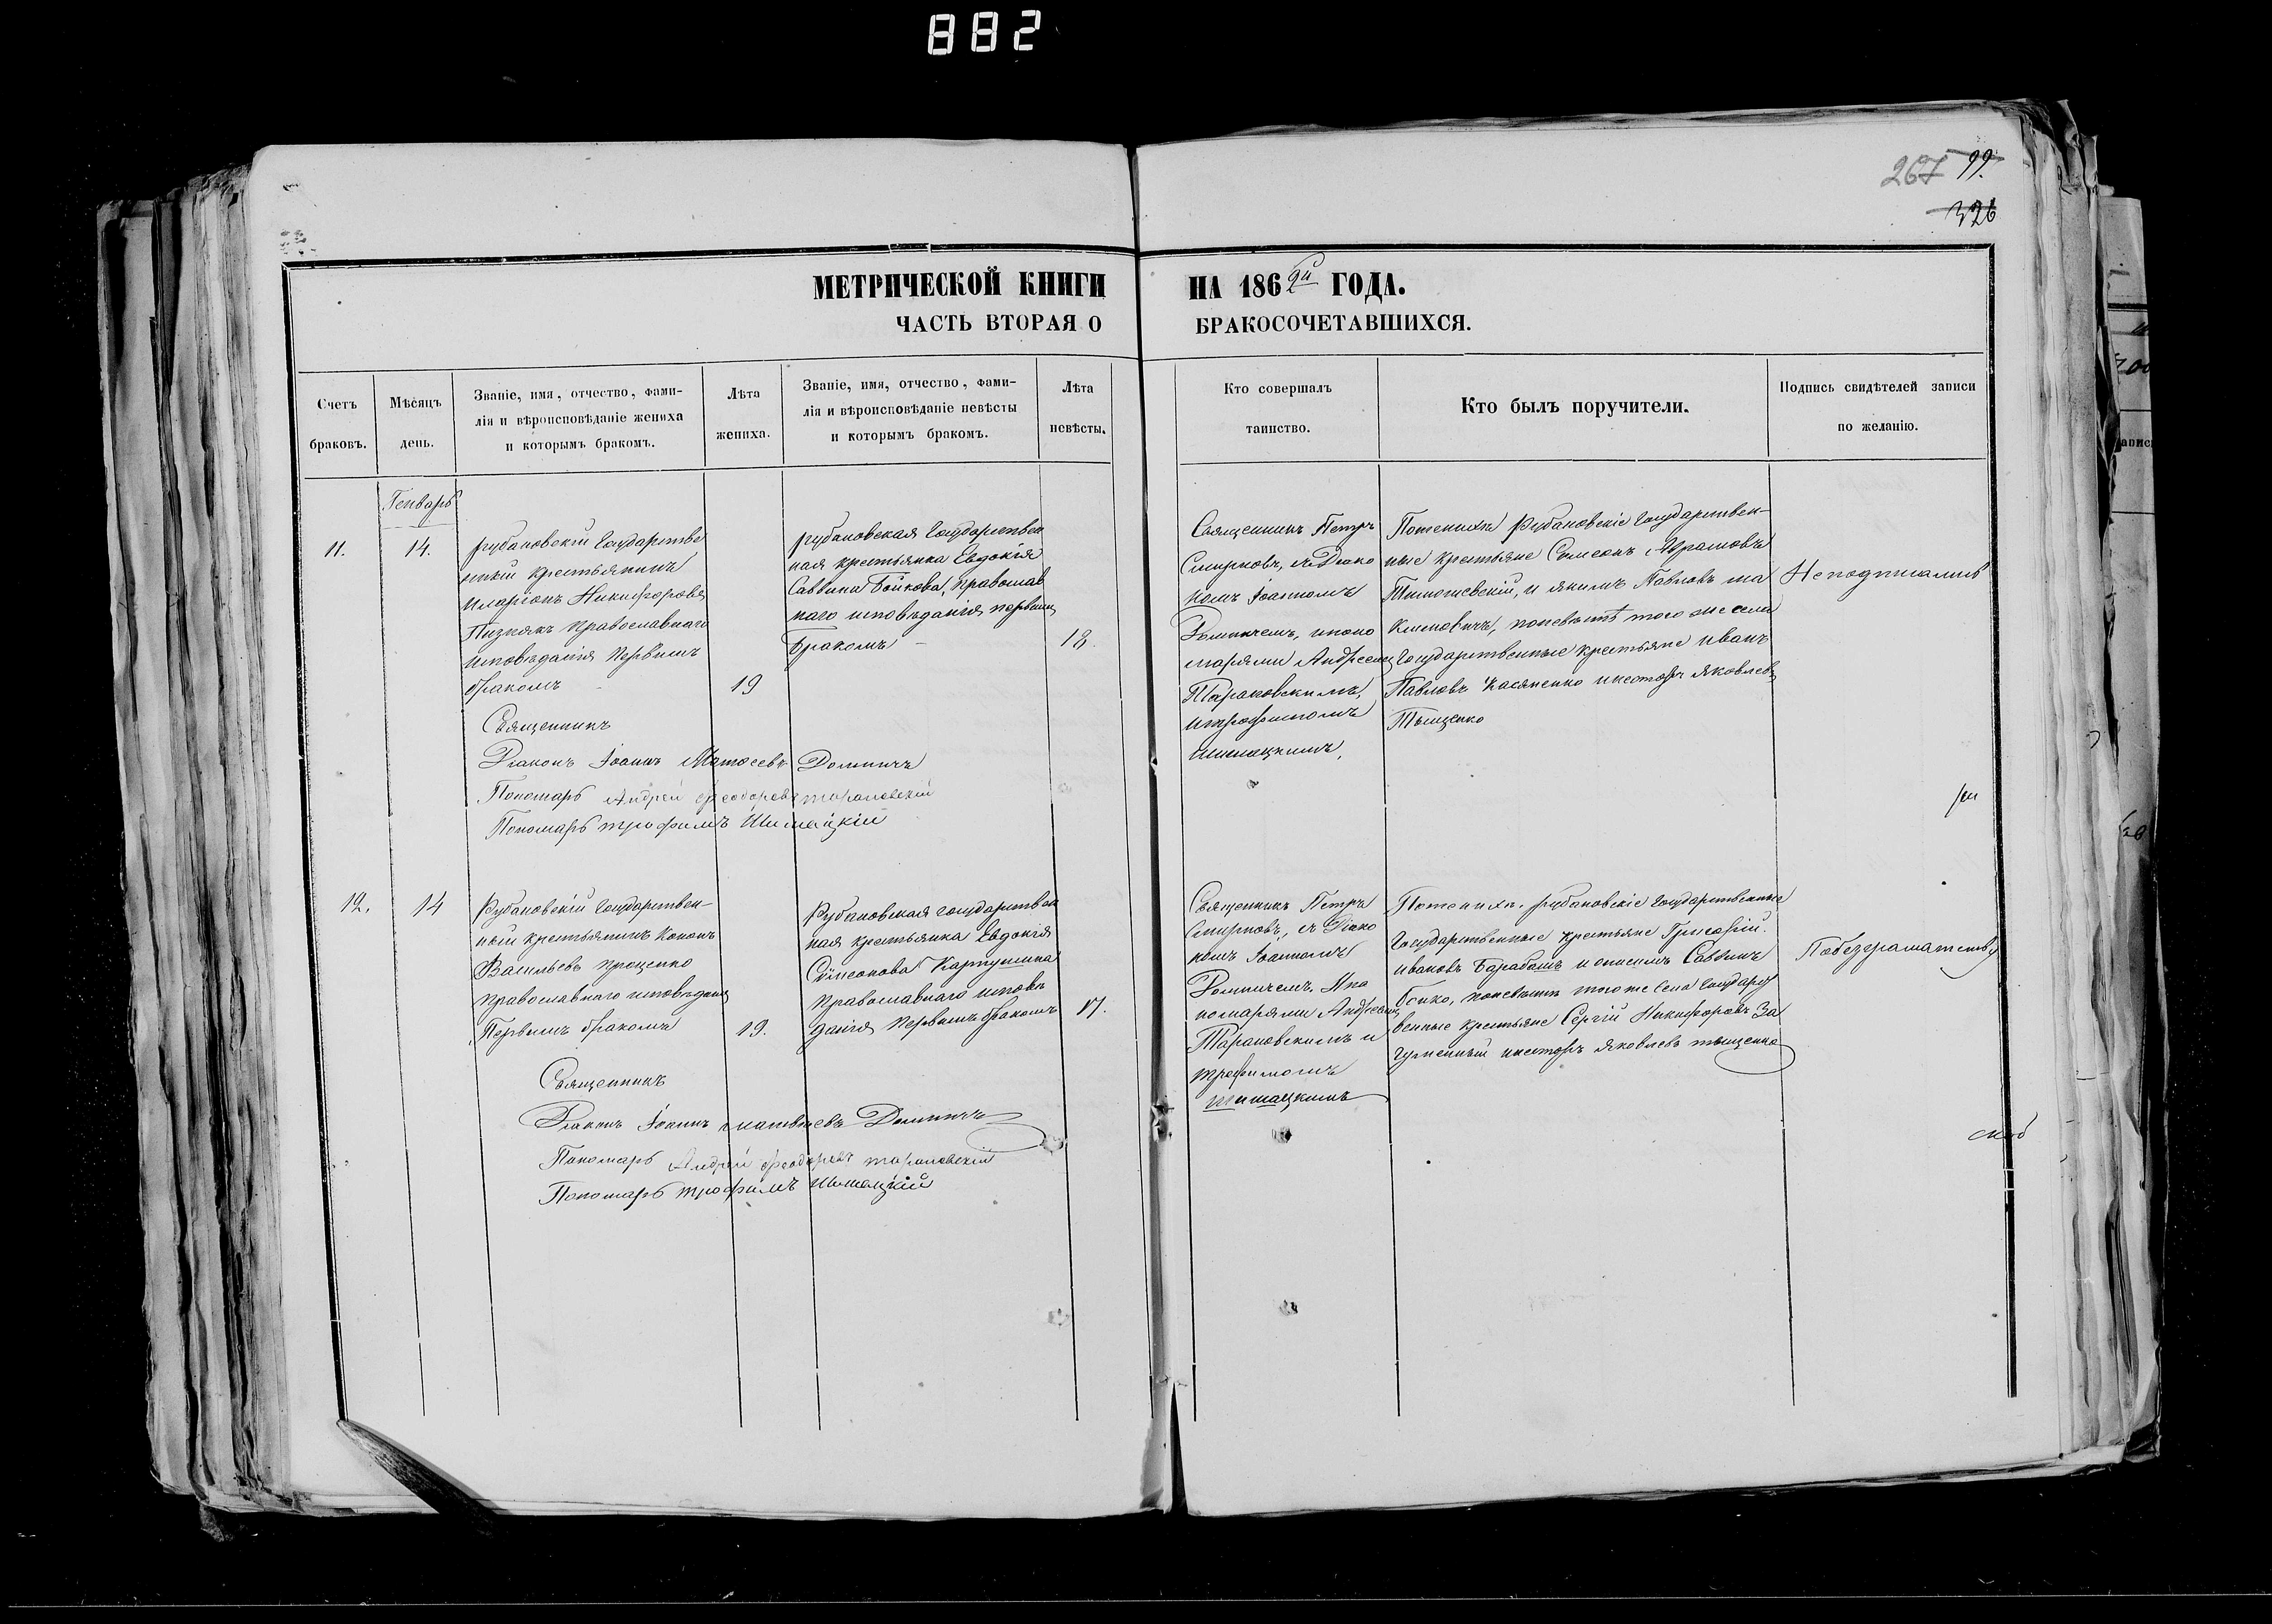 882
267 99.
326
МЕТРИЧЕСКОЙ КНИГИ НА 1862й ГОДА.
ЧАСТЬ ВТОРАЯ О БРАКОСОЧЕТАВШИХСЯ.
Счетъ браковъ.
Мѣсяцъ день.
Званіе, имя, отчество, фами-
лія и вѣроисповѣданіе жениха
и которымъ бракомъ.
Лѣта жениха.
Званіе, имя, отчество, фами-
лія и вѣроисповѣданіе невѣсты
и которымъ бракомъ.
Лѣта невѣсты.
Кто совершалъ
таинство.
Кто былъ поручители.
Подпись свидѣтелей записи
по желанію.
Генварь
11.
14.
рубановскій государстве
нный крестьянинъ
Иларіонъ Никифоровъ
Пизнякъ православнаго
исповѣданія первымъ
бракомъ
19
рубановская государствен
ная крестьянка Евдокія
Саввина Бойкова, православ
наго исповѣданія первымъ
бракомъ
18.
Священникъ Петръ
Смирновъ, съ Діако
номъ Іоанномъ
Доминичемъ, ипоно
марями Андреемъ
Тарановскимъ,
итрофимомъ
Шимацкимъ,
Поженихѣ Рубановскіе государствен-
ные крестьяне Симеонъ Аврамовъ
Тимошевскій, и якимъ Павловъ ма
ксимовичъ, поневѣстѣ того же села
государственные крестьяне Иванъ
Павловъ Касяненко инесторъ Яковлевъ
Тыщенко
Неподписались
Священникъ
Діаконъ Іоаннъ Матвеевъ Доминичъ
Пономарь Андрей Феодоровъ тарановскій
Пономарь трофимъ Шимацкій
12.
14
Рубановскій государствен-
ный крестьянинъ Кононъ
Васильевъ Проценко
православнаго исповѣданія
Первымъ бракомъ
19.
Рубановская государствен
ная крестьянка Евдокія
Сѵмеонова Картушина
православнаго исповѣ
данія первымъ бракомъ
17.
Священникъ Петръ
Смирновъ, съ Діако
номъ Іоанномъ
Доминичемъ. Ипо
номарями Андреемъ
Тарановскимъ и
трофимомъ
шимацкимъ
Поженихѣ. рубановскіе государственные
государственные крестьяне Григорій.
ивановъ Барабашъ и Саввинъ
бойко, поневѣстѣ тогоже села государ
венные крестьяне Сергій Никифоровъ За
гуменный инесторъ Яковлевъ тыщенко
Побезграматству
Священникъ
Діаконъ Іоаннъ матвѣевъ Доминичъ
Пономарь Андрей феодоровъ тарановскій
Пономарь трофимъ Шимацкій